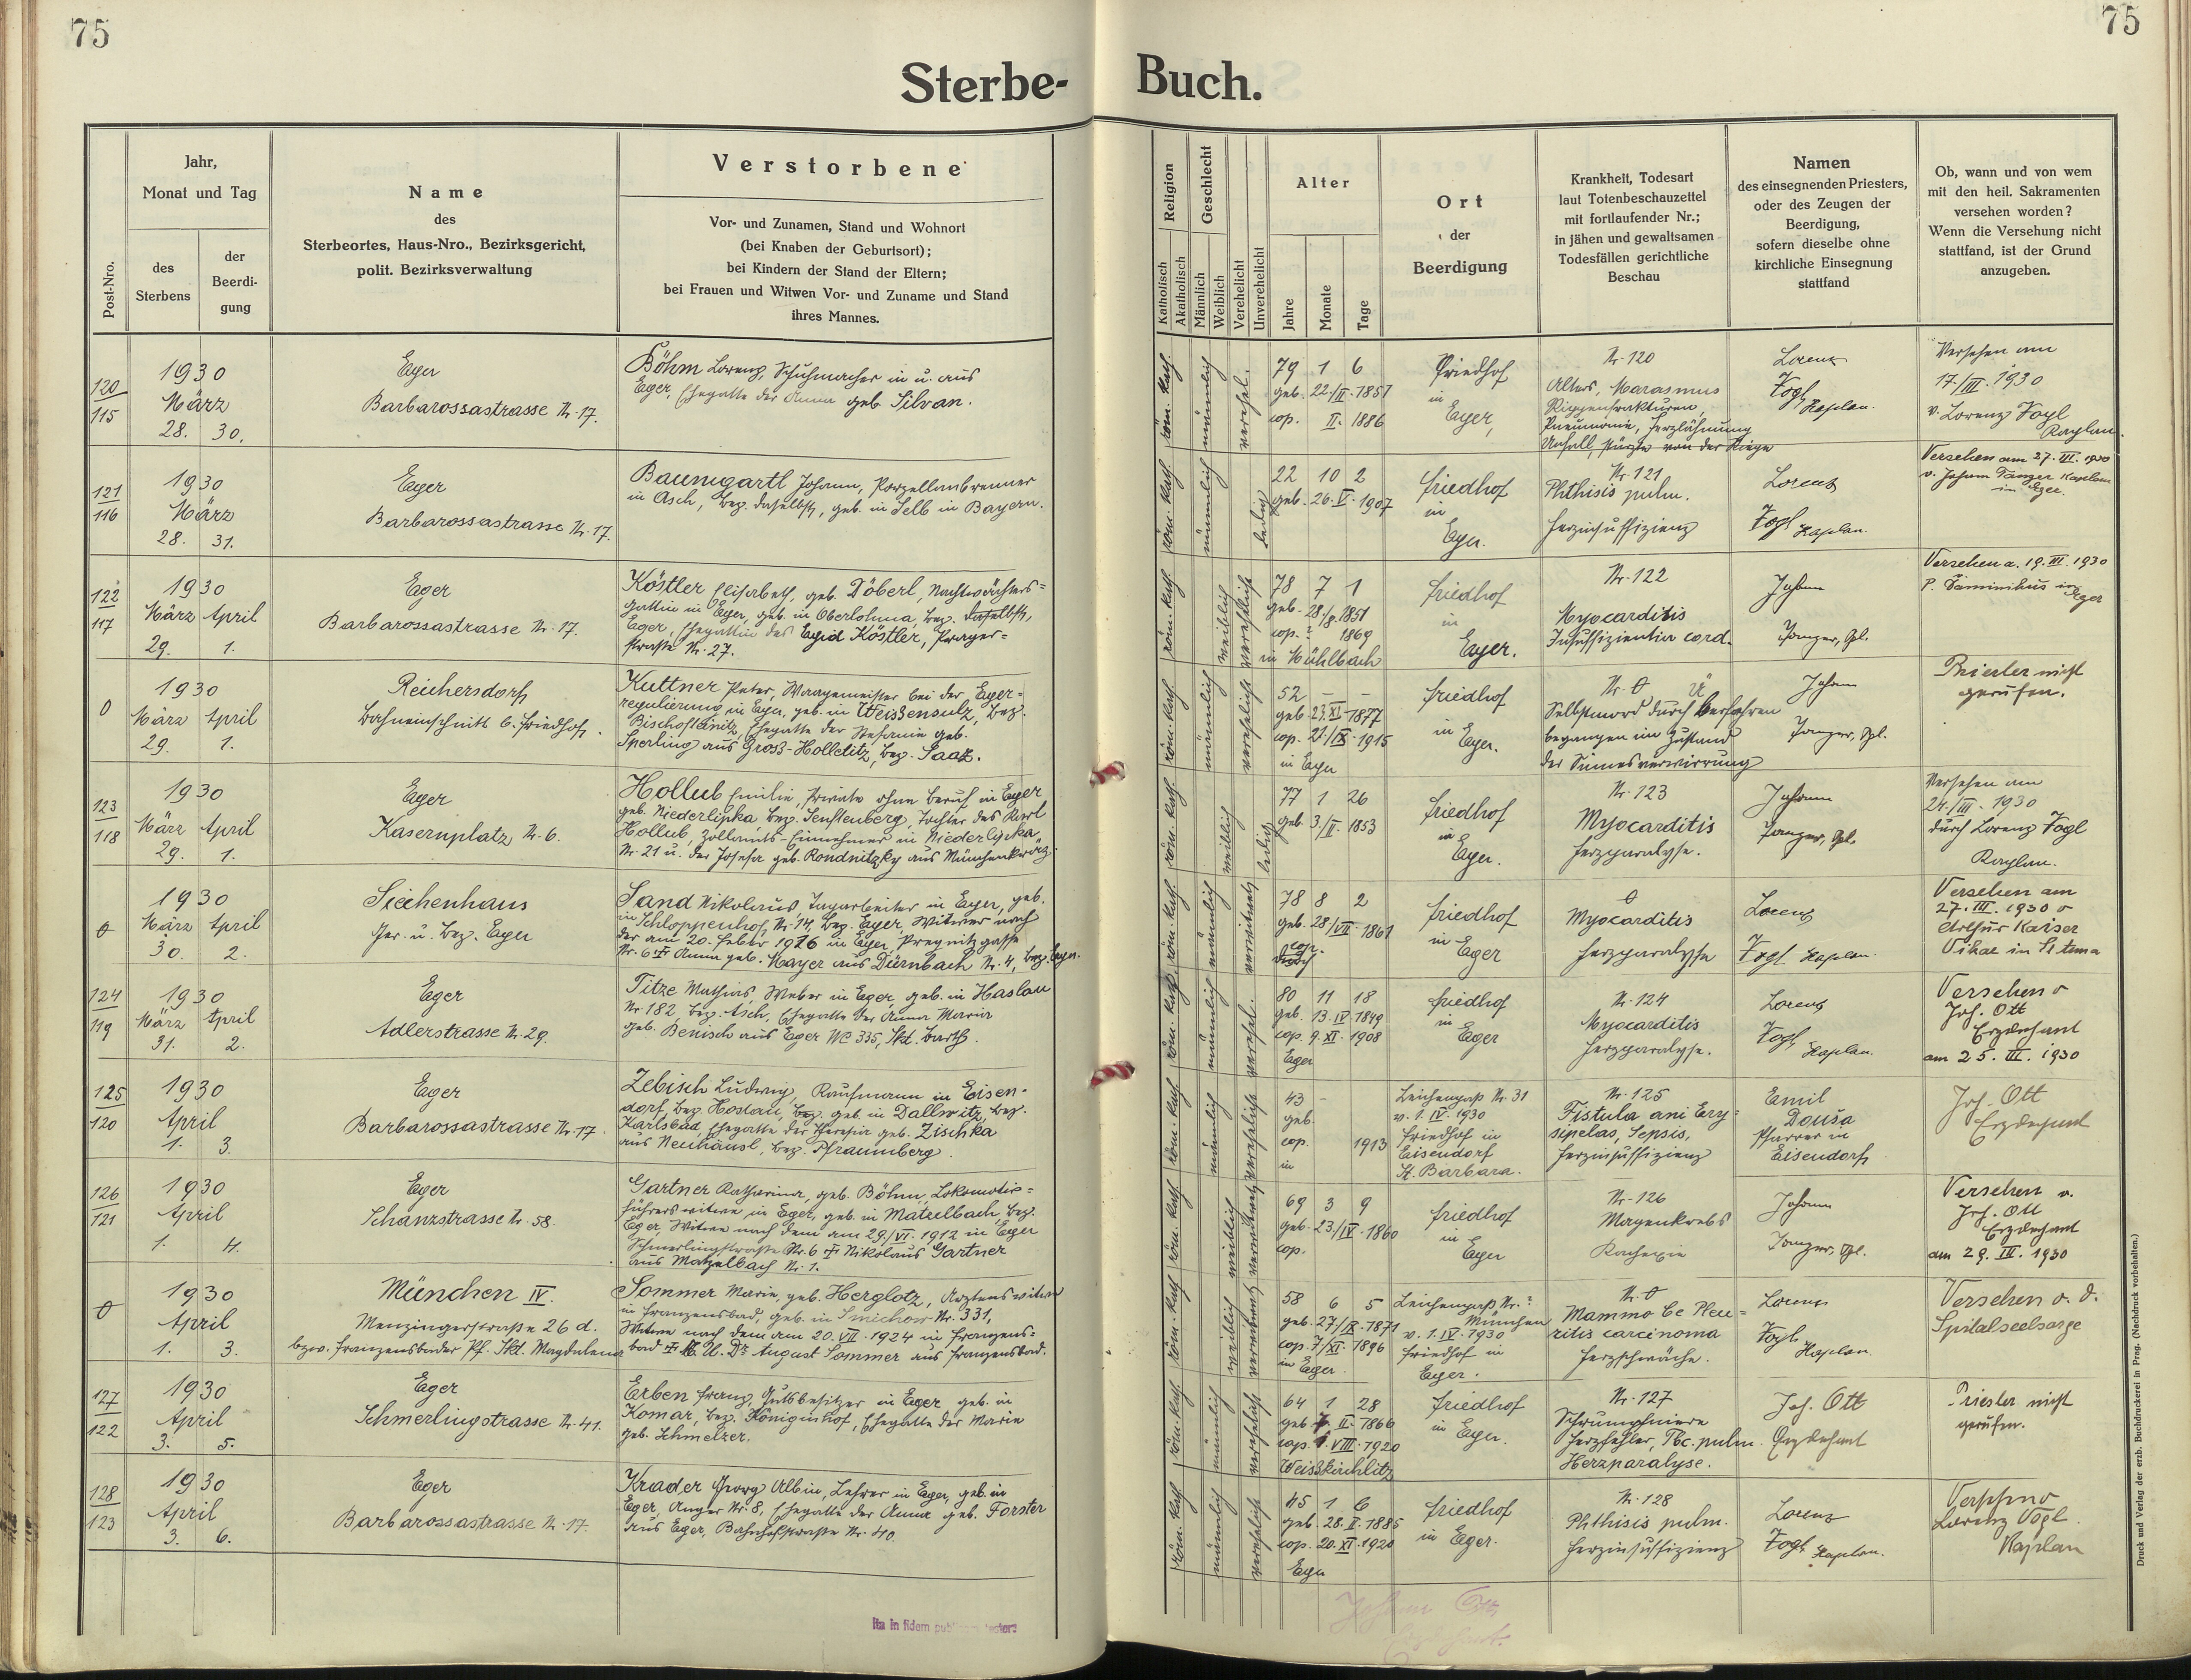 75
75
Sterbe-
Buch.
Post-Nro.
Jahr,
Monat und Tag
des
Sterbens
der
Beerdi-
gung
Name
des
Sterbeortes, Haus-Nro., Bezirksgericht,
polit. Bezirksverwaltung
Verstorbene
Vor- und Zunamen, Stand und Wohnort
(bei Knaben der Geburtsort);
bei Kindern der Stand der Eltern;
bei Frauen und Witwen Vor- und Zuname und Stand
ihres Mannes.
Religion
Katholisch
Akatholisch
Geschlecht
Männlich
Weiblich
Verehelicht
Unverehelicht
Alter
Jahre
Monate
Tage
Ort
der
Beerdigung
Krankheit, Todesart
laut Totenbeschauzettel
mit fortlaufender Nr.;
in jähen und gewaltsamen
Todesfällen gerichtliche
Beschau
Namen
des einsegnenden Priesters,
oder des Zeugen der
Beerdigung,
sofern dieselbe ohne
kirchliche Einsegnung
stattfand
Ob, wann und von wem
mit den heil. Sakramenten
versehen worden?
Wenn die Versehung nicht
stattfand, ist der Grund
anzugeben.
120
115
1930
März
28. 30.
Eger
Barbarossastrasse Nr. 17.
Böhm Lorenz, Schuhmacher in u. aus
Eger, Ehegatte der Anna geb Silvan.
röm. kath.
männlich
verehel.
79 1 6
geb. 22/II. 1851
cop. II. 1886
Friedhof
in
Eger,
Nr. 120
Alters, Marasmus
Rippenfrakturen,
Pneumonie, Herzlähmung
Unfall, stürzte von der Stiege
Lorenz
Vogl, Kaplan.
Versehen am
17./III. 1930
v. Lorenz Vogl
Kaplan.
121
116
1930
März
28. 31.
Eger
Barbarossastrasse Nr. 17.
Baumgartl Johann, Porzellanbrenner
in Asch, Bez. daselbst, geb. in Selb in Bayern.
röm. kath.
männlich
ledig
22 10 2
geb. 26. V. 1907
Friedhof
in
Eger.
Nr. 121
Phthisis pulm.
Herzinsuffizienz
Lorenz
Vogl Kaplan
Versehen am 27. III. 1930
v. Johann Janger Kaplan
in Eger.
122
117
1930
März April
29. 1.
Eger
Barbarossastrasse Nr. 17.
Köstler Elisabeth, geb. Döberl, Nachtwächters=
gattin in Eger, geb. in Oberlohma, Bez. daselbst,
Eger, Ehegattin des Egid Köstler, Prager=
straße Nr. 27.
röm. kath.
weiblich
verehelicht
78 7 1
geb. 28./8. 1851
cop. ? 1869
in Mühlbach
Friedhof
in
Eger.
Nr. 122
Myocarditis
Insuffizientia cord.
Johann
Janger, Kpl.
Versehen a. 19. III. 1930
P. Dominikus in
Eger
0
1930
März April
29. 1.
Reichersdorf
Bahneinschnitt b. Friedhof.
Kuttner Peter, Waagemeister bei der Eger=
regulierung in Eger, geb. in Weissensulz, Bez.
Bischofteinitz, Ehegatte der Stefanie geb.
Sperling aus Gross-Holletitz, Bez. Saaz.
röm. kath.
männlich
verehelicht
52 - -
geb. 23. XI. 1877
cop. 21./IX. 1915
in Eger
Friedhof
in
Eger.
Nr. 0
Selbstmord durch Überfahren
begangen im Zustand
der Sinnesverwirrung
Johann
Janger, Kpl.
Priester nicht
gerufen.
123
118
1930
März April
29. 1.
Eger
Kasernplatz Nr. 6.
Hollub Emilie, Private ohne Beruf in Eger
geb. Niederlipka Bez. Senftenberg, Tochter des Karl
Hollub, Zollamts-Einnehmer in Niederlipka
Nr. 21 u. der Josefa geb. Rondnitzky aus Münchenkrätz.
röm. kath.
weiblich
ledig
77 1 26
geb. 3/II. 1853
Friedhof
in
Eger.
Nr. 123
Myocarditis
Herzparalyse.
Johann
Janger, Kpl.
Versehen am
24./III. 1930
durch Lorenz Vogl
Kaplan.
0
1930
März April
30. 2.
Siechenhaus
Ger. u. Bez. Eger
Sand Nikolaus, Tagarbeiter in Eger, geb.
in Schloppenhof, Nr. 14, Bez. Eger, Witwer nach
der am 20. Feber 1926 in Eger, Pregnitzgasse
Nr. 6 † Anna geb. Mayer aus Dürnbach Nr. 4, Bez. Eger.
röm. kath.
männlich
verwitwet
78 8 2
geb. 28/VII. 1861
cop.
Friedhof
in Eger
0
Myocarditis
Herzparalyse
Lorenz
Vogl Kaplan.
Versehen am
27. III. 1930 v
Arthur Kaiser
Vikar in St. Anna
124
119
1930
März April
31. 2.
Eger
Adlerstrasse Nr. 29.
Titze Mathias, Weber in Eger, geb. in Haslau
Nr. 182, Bez. Asch, Ehegatte der Anna Maria
geb. Benisch aus Eger NC 335, Skt. Barth.
röm. kath.
männlich
verehel.
80 11 18
geb. 13. IV 1849
cop. 9. XI. 1908
Eger
Friedhof
in
Eger
Nr. 124
Myocarditis
Herzparalyse.
Lorenz
Vogl, Kaplan.
Versehen v
Joh. Ott
Erzdechant
am 25. III. 1930
125
120
1930
April
1. 3.
Eger
Barbarossastrasse Nr. 17.
Zebisch Ludwig, Kaufmann in Eisen-
dorf, Bez. Hostau, geb. in Dallwitz, Bez.
Karlsbad, Ehegatte der Theresia geb. Zischka
aus Neuhäusl, Bez. Pfraumberg.
röm. kath.
männlich
verehelicht
43 -
geb.
cop. 1913
in
Leichenpaß Nr. 31
v. 1. IV. 1930
Friedhof in
Eisendorf
St. Barbara.
Nr. 125
Fistula ani Ery=
sipelas, Sepsis,
Herzinsuffizienz
Emil
Dousa
Pfarrer in
Eisendorf
Joh. Ott
Erzdechant
126
121
1930
April
1. 4.
Eger
Schanzstrasse Nr. 58.
Gartner Katharina, geb. Böhm, Lokomotiv=
führerswitwe in Eger, geb. in Matzelbach, Bez.
Eger, Witwe nach dem am 29./VI. 1912 in Eger
Schmerlingstraße Nr. 6 † Nikolaus Gartner
aus Matzelbach Nr. 1.
röm. kath.
weiblich
verwitwet
69 3 9
geb. 23./IV. 1860
cop.
Friedhof
in
Eger
Nr. 126
Magenkrebs
Kachexie
Johann
Janger, Kpl.
Versehen v.
Joh. Ott
Erzdechant
am 29. III. 1930
0
1930
April
1. 3.
München IV.
Menzingerstraße 26 d.
bezw. Franzensbader Pf. Skt. Magdalena
Sommer Marie, geb. Herglotz, Arztenswitwe
in Franzensbad, geb. in Smichow Nr. 331,
Witwe nach dem am 20. VII. 1924 in Franzens=
bad † M. U. Dr August Sommer aus Franzensbad.
röm. kath.
weiblich
verwitwet
58 6 5
geb. 27/IX. 1871
cop. 7/XI. 1896
in Eger.
Leichenpaß Nr. ?
München
v. 1. IV. 1930
Friedhof in
Eger.
Nr. 0
Mammo ce Pleu=
ritis carcinoma
Herzschwäche.
Lorenz
Vogl,
Kaplan.
Versehen v. d.
Spitalseelsorge
127
122
1930
April
3. 5.
Eger
Schmerlingstrasse Nr. 41.
Erben Franz, Gutsbesitzer in Eger geb. in
Komar, Bez. Königinhof, Ehegatte der Marie
geb. Schmelzer.
röm. kath.
männlich
verehelicht
64 1 28
geb. II. 1866
cop. VIII. 1920
Weisskirchlitz
Friedhof
in Eger.
Nr. 127
Schrumpfniere
Herzfehler, Tbc. pulm.
Herzparalyse.
Joh. Ott
Erzdechant
Priester nicht
gerufen.
128
123
1930
April
3. 6.
Eger
Barbarossastrasse Nr. 17.
Krader Georg Albin, Lehrer in Eger, geb. in
Eger, Anger Nr. 8, Ehegatte der Anna geb. Forster
aus Eger, Bahnhofstraße Nr. 40.
röm. kath.
männlich
verehelicht
45 1 6
geb. 28. II. 1885
cop. 20. XI. 1920
Eger
Friedhof
in Eger.
Nr. 128
Phthisis pulm.
Herzinsuffizienz
Lorenz
Vogl, Kaplan.
Versehen v
Lorenz Vogl
Kaplan
Ita in fidem
Johann Ott
Druck und Verlag der erzb. Buchdruckerei in Prag. (Nachdruck vorbehalten.)